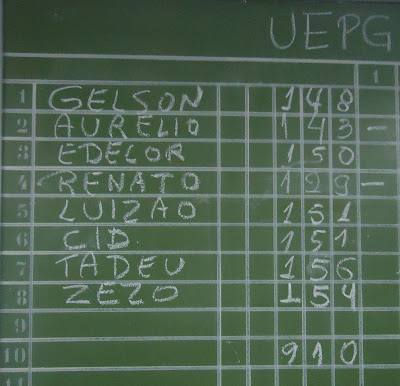 UEPG
1
1 GELSON 148
2 AURELIO 143 –
3 EDELOR 150
4 RENATO 129 –
5 LUIZAO 151
6 CID 151
7 TADEU 156
8 ZEZO 154
9
10 910
11